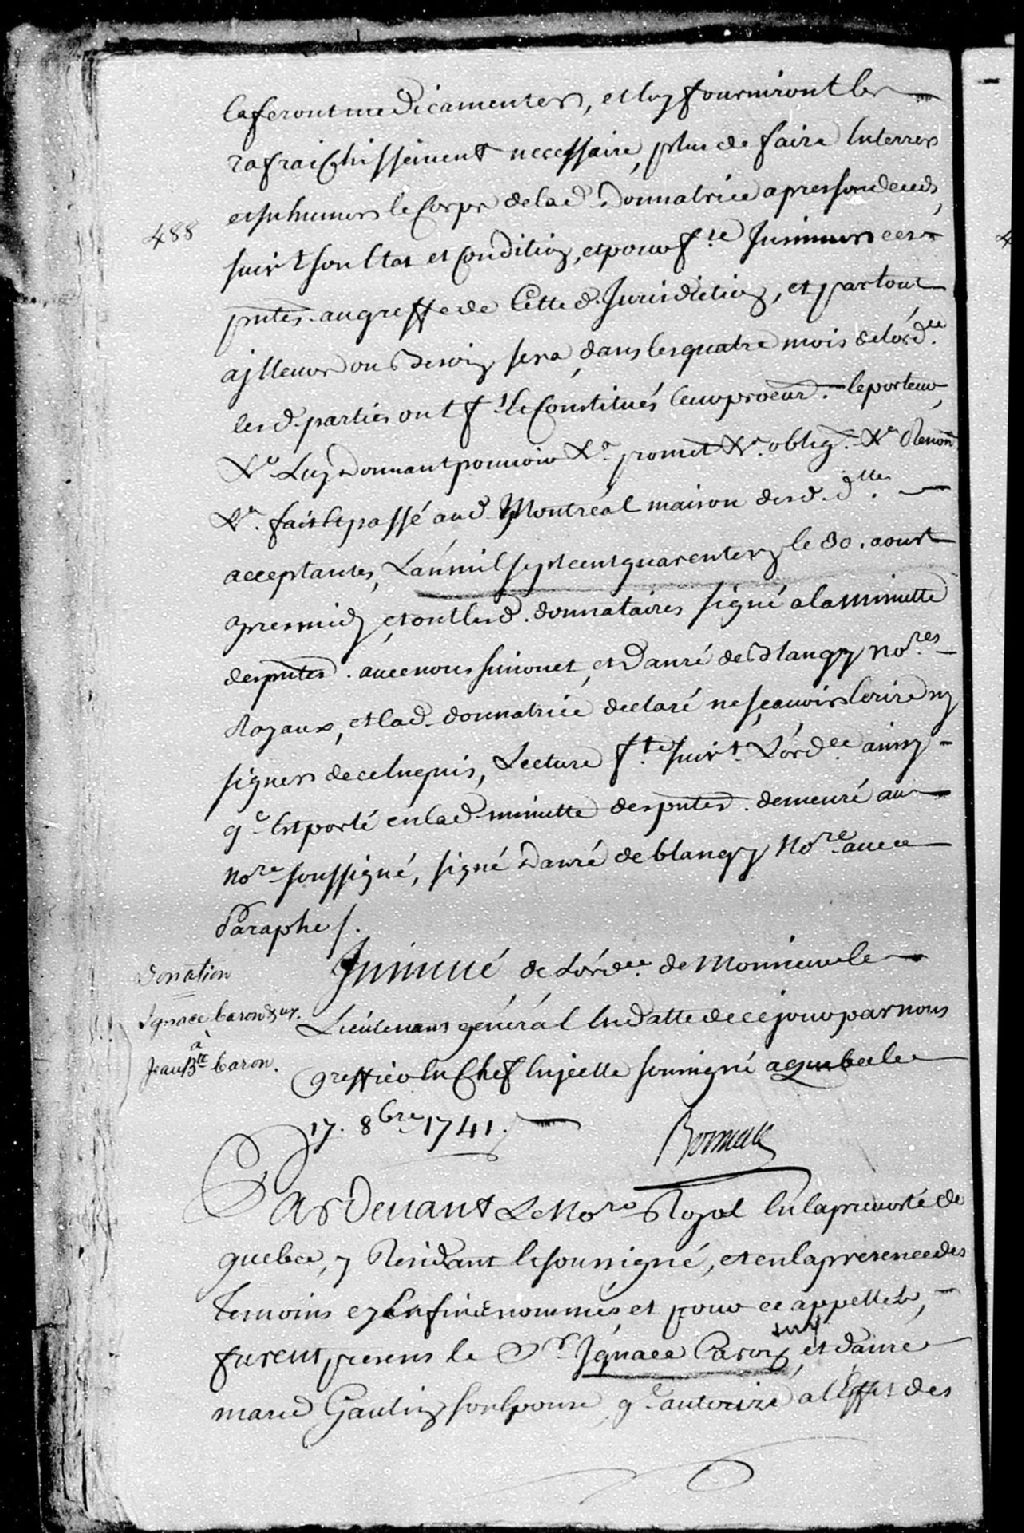 la feront medicamenter, et luy fourniront les
rafraichissement necessaire, plus de faire Enterrer
et Inhumer le Corps de lad. Donnatrice apres son deceds,
488
suivt son Etat et Condition, et pour fre Insinuer ces
pntes. au greffe de Cette d. Jurisdiction, et partout
ajlleurs ou Besoin sera, dans les quatre mois de l'ordce.
les d. parties ont ft. le Constitués leur procur. le porteur
&a. Luy donnant pouvoir &a. promett &a. oblig. &a. Renon
&a. fait et passé aud. Montréal maison desd. dlles.
acceptantes, L'an mil sept cent quarente un le 30. aoust
apres midy, et ont lesd. donnataires signé a la minutte
des pntes. avec nous Simonet, et Danré de Blanzy nores
Royaux, et lad. donnatrice declaré ne sçavoir Ecrire ny
signer de ce Enquis, Lecture fte. suivt. L'ordce. ainsy
qe. Est porté en lad. minutte des pntes. demeuré au
nore soussigné, signé Danré de blanzy Nore avec
Paraphe /.
Insinué de L'ordce. de Monsieur le
Lieutenant général En datte de ce jour par nous
greffier En Chef En jcelle sousigné a quebec le
17. 8bre 1741.
Boisseau
Donation
Ignace baron & ux.
a
Jean Bte baron.
Pardevant Le Nore Royal En la prevosté de
quebec, y Residant le soussigné, et en la presence des
temoins cy Enfin nommés, et pour ce appellés,
furent presens le Sr. Ignace Baron, et dame
marie Gaulin son Epouse, qe. autorize a l'Effet des